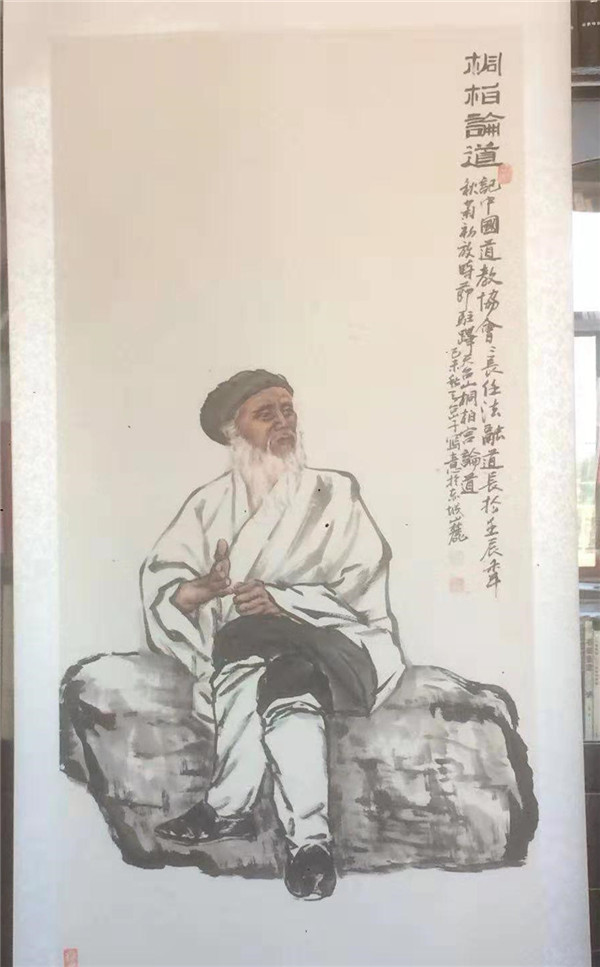 桐柏論道
記中國道教協會會長任法融道長於壬辰年
秋菊初放時節駐蹕天台山桐柏宮論道
己未秋 寫意於东城山麓